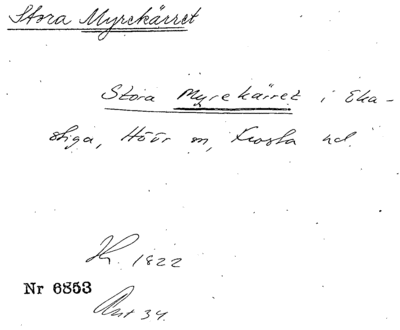 Stora Myrekärret
Stora Myrekärret i Eka-
stiga, Höör sn, Frosta hd.
1822
Nr 6853
Ant 34.